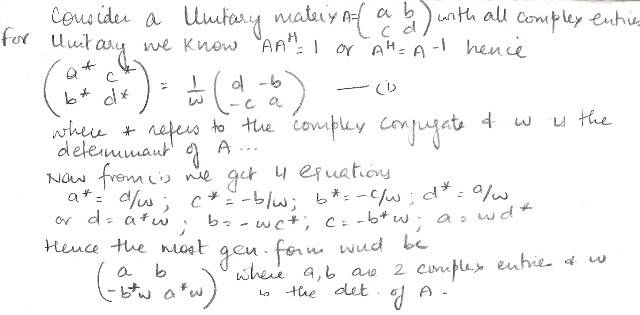 Consider a Unitary matrix A = ( a b with all complex entries
c d )
For Unitary we know AA^H = 1 or A^H = A^-1 hence
( a* c* ) = 1/w ( d -b ) — (1)
( b* d* ) ( -c a )
where * refers to the complex conjugate & w is the
determinant of A ...
Now from (1) we get 4 equations
a* = d/w ; c* = -b/w ; b* = -c/w ; d* = a/w
or d = a*w ; b = -wc* ; c = -b*w ; a = wd*
Hence the most gen. form wud be
( a b ) where a,b are 2 complex entries & w
( -b*w a*w ) is the det. of A.